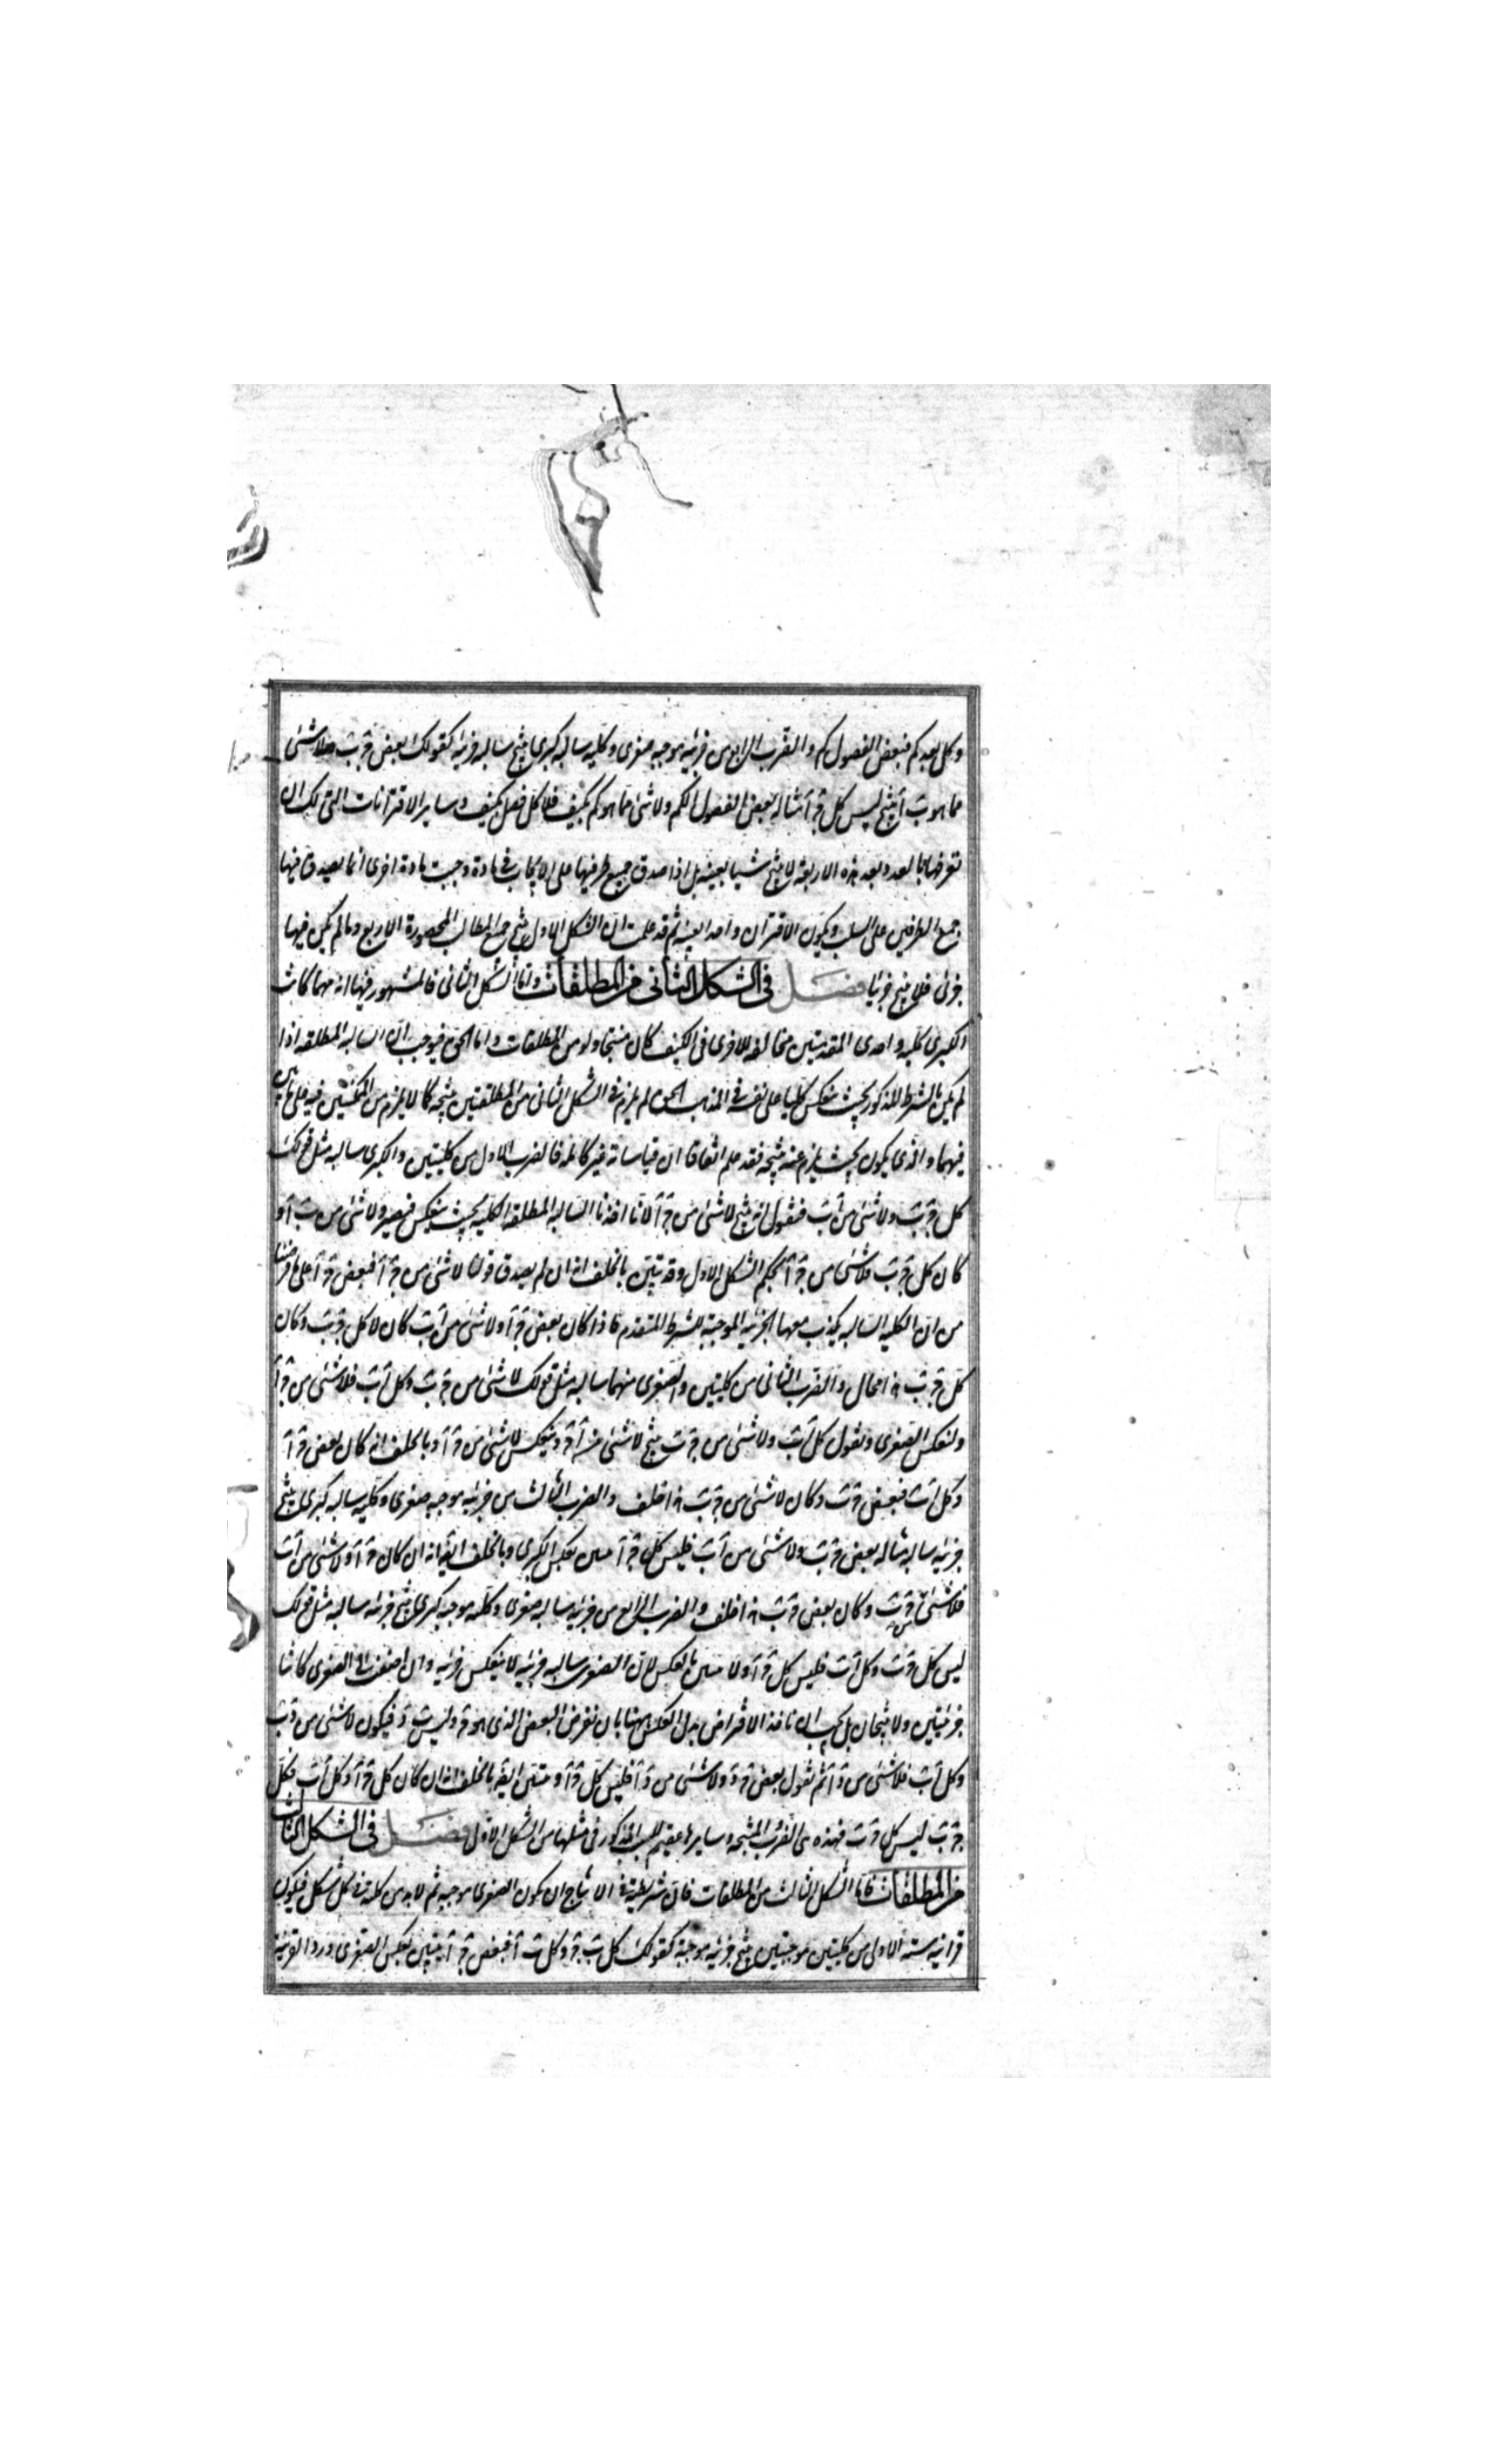 وكل بعد كم فبعض الفصول كم والضرب الرابع من جزئية موجبة صغرى وكلية سالبة كبرى ينتج سالبة جزئية كقولك بعض ج ب ولا شئ
مما هو ب آ ينتج ليس كل ج آ مثاله بعض الفصول الكم ولا شئ مما هو كم بكيف فلا كل فصل بكيف وساير الاقترانات التى لك ان
تعرفها بالعدد بعد هذه الاربعة لا ينتج شيا بعينه بل اذا صدق جميع طرفيها على الايجاب فى مادة وجبت مادة اخرى انما يصدق فيها
جمع الطرفين على السلب ويكون الاقتران واحدا بعينه ثم قد علمت ان الشكل الاول ينتج جميع المطالب المحصورة الاربع وما لم يكن فيها
جزئى فلا ينتج جزئيا فصل فى الشكل الثانى من المطلقات واما الشكل الثانى فالمشهور فيها انه مهما كانت
الكبرى كلية واحدى المقدمتين مخالفة للاخرى فى الكيف كان منتجا ولو من المطلقات واما الحق فيوجب ان السالبة المطلقة اذا
لم يكن بالشرط المذكور بحيث ينعكس كليا على نفسه فى المذهب الحق لم يلزم فى الشكل الثانى من المطلقتين نتيجة كما لا يلزم من الممكنتين فيه على
فيهما والذى يكون بحيث يلزم عنه نتيجة فقد علم اتفاقا ان قياساته غير كاملة فالضرب الاول من كليتين والكبرى سالبة مثل قولك
كل ج ب ولا شئ من آ ب فنقول انه ينتج لا شئ من ج آ لانا اخذنا السالبة المطلقة الكلية بحيث ينعكس فيصير ولا شئ من ب آ و
كان كل ج ب فلا شئ من ج آ بحكم الشكل الاول وقد تبين بالخلف انه ان لم يصدق قولنا لا شئ من ج آ فبعض ج آ على ما فرضنا
من ان الكلية السالبة يكذب معها الجزئية الموجبة للشرط المتقدم فاذا كان بعض ج آ ولا شئ من آ ب كان لا كل ج ب وكان
كل ج ب هذا محال والضرب الثانى من كليتين والصغرى منهما سالبة مثل قولك لا شئ من ج ب وكل آ ب فلا شئ من ج آ
ولنعكس الصغرى ونقول كل آ ب ولا شئ من ج ب ينتج لا شئ من آ ج وينعكس لا شئ من ج آ وبالخلف انه كان بعض ج آ
وكل آ ب فبعض ج ب وكان لا شئ من ج ب هذا خلف والضرب الثالث من جزئية موجبة صغرى وكلية سالبة كبرى ينتج
جزئية سالبة مثاله بعض ج ب ولا شئ من آ ب فليس كل ج آ يتبين بعكس الكبرى وبالخلف ايضا انه ان كان ج آ ولا شئ من آ ب
فلا شئ من ج ب وكان بعض ج ب هذا خلف والضرب الرابع من جزئية سالبة صغرى وكلية موجبة كبرى ينتج جزئية سالبة مثل قولك
ليس كل ج ب وكل آ ب فليس كل ج آ ولا يتبين بالعكس لان الصغرى سالبة جزئية لا ينعكس جزئية وان اضفت الى الصغرى كانتا
جزئيتين ولا ينتجان بل يجب ان نأخذ الافتراض بدل العكس ههنا بان نفرض البعض الذى هو ج وليس ب د فيكون لا شئ من د ب
وكل آ ب فلا شئ من د آ ثم نقول بعض ج د ولا شئ من د آ فليس كل ج آ ويتبين ايضا بالخلف انه ان كان كل ج آ وكل آ ب فكل
ج ب ليس كل ج ب فهذه هى الضروب المنتجة وسايرها عقيم للسبب المذكور فى مثلها من الشكل الاول فصل فى الشكل الثالث
من المطلقات فاما الشكل الثالث من المطلقات فان شريطته فى الانتاج ان يكون الصغرى موجبة ثم لا بد من كلية فى كل شكل فيكون
قرائنه ستة الاولى من كليتين موجبتين ينتج جزئية موجبة كقولك كل ب ج وكل ب آ فبعض ج آ يتبين بعكس الصغرى ورد القرينة